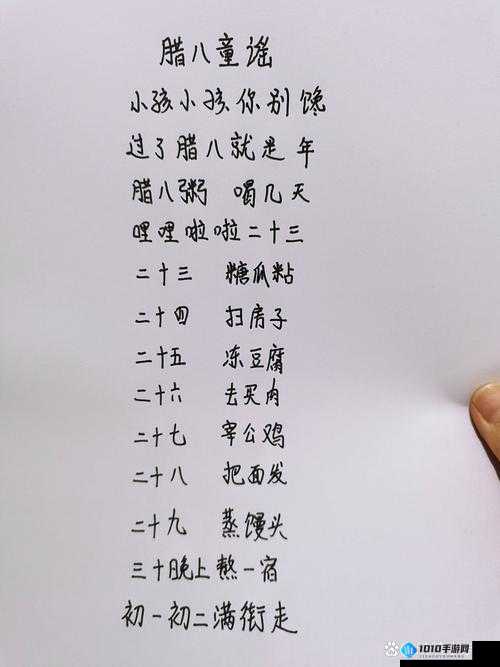 腊八童谣
小孩小孩你别馋
过了腊八就是年
腊八粥 喝几天
哩哩啦啦二十三
二十三 糖瓜粘
二十四 扫房子
二十五 冻豆腐
二十六 去买肉
二十七 宰公鸡
二十八 把面发
二十九 蒸馒头
三十晚上熬一宿
初一初二满街走
1010手游网